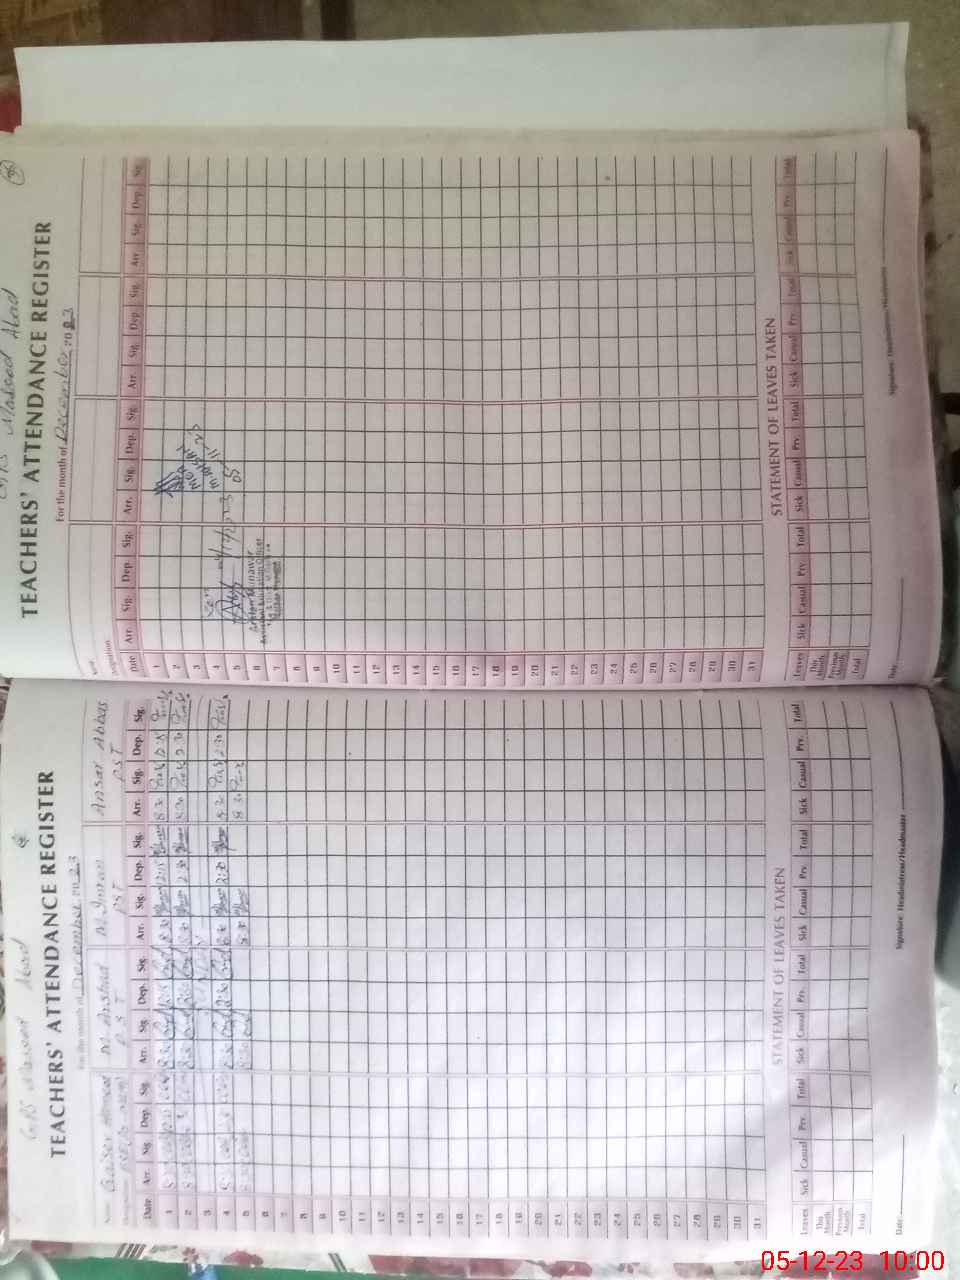 GPS Masood Abad
TEACHERS' ATTENDANCE REGISTER
For the month of December 2023
Name Qaiser Ahmad M. Arshad M. Imran Ansar Abbas
Designation PST PST PST
Date Arr. Sig. Dep. Sig. Arr. Sig. Dep. Sig. Arr. Sig. Dep. Sig. Arr. Sig. Dep. Sig.
1 8:30 8:30 12:15 8:30 12:15 8:30 12:15
2 8:30 8:30 2:30 8:30 2:30 8:30 2:30
3
4 8:30 8:30 2:30 8:30 2:30 8:30 2:30
5 8:30 8:30 8:30 8:30
6
7
8
9
10
11
12
13
14
15
16
17
18
19
20
21
22
23
24
25
26
27
28
29
30
31
STATEMENT OF LEAVES TAKEN
Leaves Sick Casual Prv. Total Sick Casual Prv. Total Sick Casual Prv. Total Sick Casual Prv. Total
This Month
Previous Month
Total
Date: Signature: Headmistress/Headmaster
GPS Masood Abad
TEACHERS' ATTENDANCE REGISTER
For the month of December 2023
Name
Designation
Date Arr. Sig. Dep. Sig. Arr. Sig. Dep. Sig. Arr. Sig. Dep. Sig. Arr. Sig. Dep. Sig.
1
2
3
4
5
6
7
8
9
10
11
12
13
14
15
16
17
18
19
20
21
22
23
24
25
26
27
28
29
30
31
Munawar
Assistant Education Officer
STATEMENT OF LEAVES TAKEN
Leaves Sick Casual Prv. Total Sick Casual Prv. Total Sick Casual Prv. Total Sick Casual Prv. Total
This Month
Previous Month
Total
Date: Signature: Headmistress/Headmaster
05-12-23 10:00